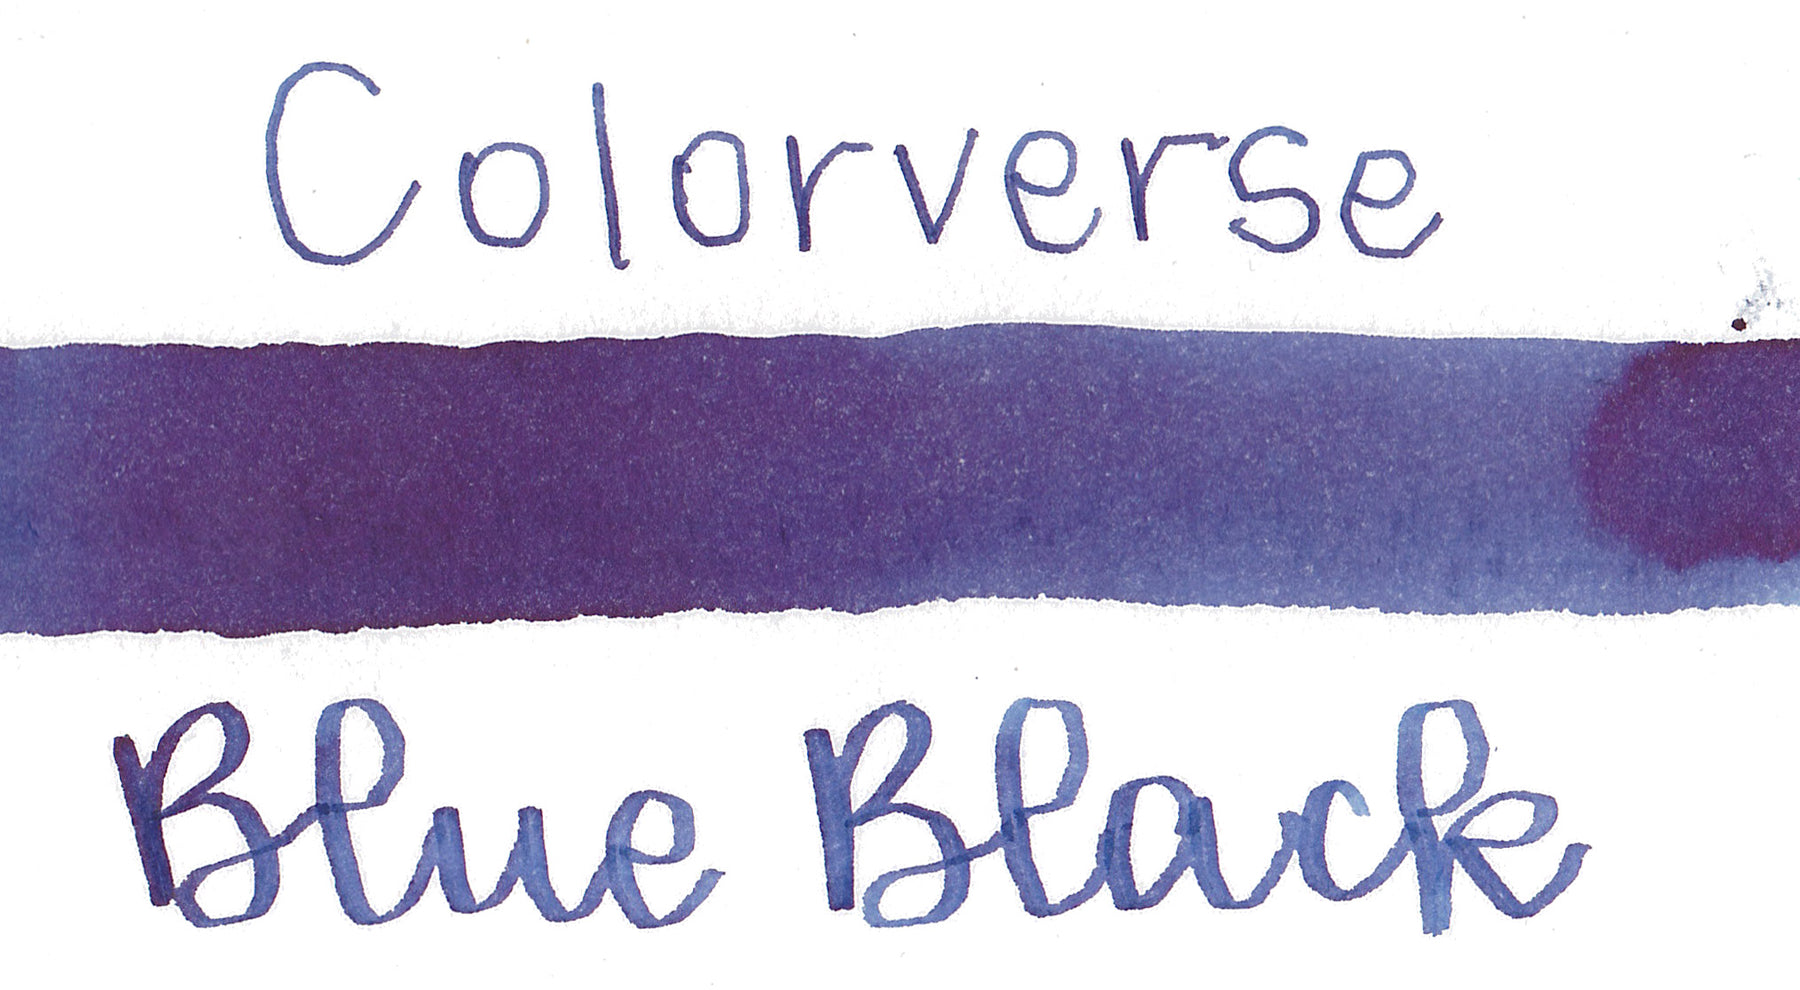 Colorverse
Blue Black